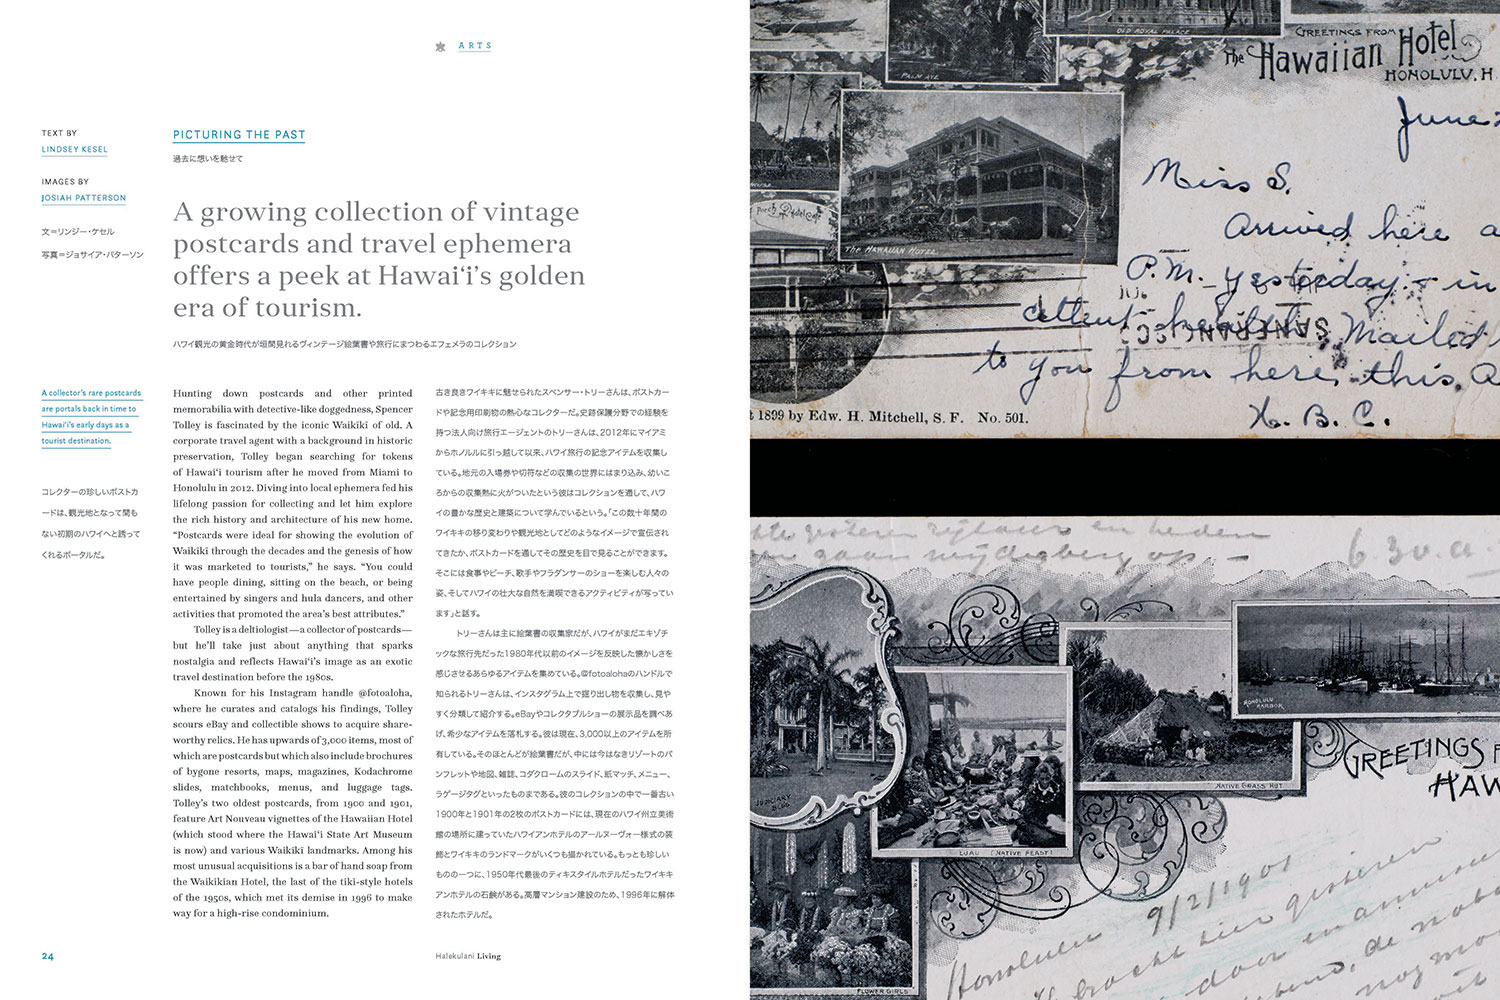 ARTS
TEXT BY
LINDSEY KESEL
IMAGES BY
JOSIAH PATTERSON
文=リンジー・ケセル
写真=ジョサイア・パターソン
PICTURING THE PAST
過去に想いを馳せて
A growing collection of vintage
postcards and travel ephemera
offers a peek at Hawai‘i’s golden
era of tourism.
ハワイ観光の黄金時代が垣間見れるヴィンテージ絵葉書や旅行にまつわるエフェメラのコレクション
A collector’s rare postcards
are portals back in time to
Hawai‘i’s early days as a
tourist destination.
コレクターの珍しいポストカ
ードは、観光地となって間も
ない初期のハワイへと誘って
くれるポータルだ。
Hunting down postcards and other printed
memorabilia with detective-like doggedness, Spencer
Tolley is fascinated by the iconic Waikīkī of old. A
corporate travel agent with a background in historic
preservation, Tolley began searching for tokens
of Hawai‘i tourism after he moved from Miami to
Honolulu in 2012. Diving into local ephemera fed his
lifelong passion for collecting and let him explore
the rich history and architecture of his new home.
“Postcards were ideal for showing the evolution of
Waikīkī through the decades and the genesis of how
it was marketed to tourists,” he says. “You could
have people dining, sitting on the beach, or being
entertained by singers and hula dancers, and other
activities that promoted the area’s best attributes.”
Tolley is a deltiologist—a collector of postcards—
but he’ll take just about anything that sparks
nostalgia and reflects Hawai‘i’s image as an exotic
travel destination before the 1980s.
Known for his Instagram handle @fotoaloha,
where he curates and catalogs his findings, Tolley
scours eBay and collectible shows to acquire share-
worthy relics. He has upwards of 3,000 items, most of
which are postcards but which also include brochures
of bygone resorts, maps, magazines, Kodachrome
slides, matchbooks, menus, and luggage tags.
Tolley’s two oldest postcards, from 1900 and 1901,
feature Art Nouveau vignettes of the Hawaiian Hotel
(which stood where the Hawai‘i State Art Museum
is now) and various Waikīkī landmarks. Among his
most unusual acquisitions is a bar of hand soap from
the Waikikian Hotel, the last of the tiki-style hotels
of the 1950s, which met its demise in 1996 to make
way for a high-rise condominium.
古き良きワイキキに魅せられたスペンサー・トリーさんは、ポストカー
ドや記念用印刷物の熱心なコレクターだ。史跡保護分野での経験を
持つ法人向け旅行エージェントのトリーさんは、2012年にマイアミ
からホノルルに引っ越して以来、ハワイ旅行の記念アイテムを収集し
ている。地元の入場券や切符などの収集の世界にはまり込み、幼いこ
ろからの収集熱に火がついたという彼はコレクションを通して、ハワ
イの豊かな歴史と建築について学んでいるという。「この数十年間の
ワイキキの移り変わりや観光地としてどのようなイメージで宣伝され
てきたか、ポストカードを通してその歴史を目で見ることができます。
そこには食事やビーチ、歌手やフラダンサーのショーを楽しむ人々の
姿、そしてハワイの壮大な自然を満喫できるアクティビティが写ってい
ます」と話す。
トリーさんは主に絵葉書の収集家だが、ハワイがまだエキゾチ
ックな旅行先だった1980年代以前のイメージを反映した懐かしさを
感じさせるあらゆるアイテムを集めている。@fotoalohaのハンドルで
知られるトリーさんは、インスタグラム上で掘り出し物を収集し、見や
すく分類して紹介する。eBayやコレクタブルショーの展示品を調べあ
げ、希少なアイテムを落札する。彼は現在、3,000以上のアイテムを所
有している。そのほとんどが絵葉書だが、中には今はなきリゾートのパ
ンフレットや地図、雑誌、コダクロームのスライド、紙マッチ、メニュー、
ラゲージタグといったものまである。彼のコレクションの中で一番古い
1900年と1901年の2枚のポストカードには、現在のハワイ州立美術
館の場所に建っていたハワイアンホテルのアールヌーヴォー様式の装
飾とワイキキのランドマークがいくつも描かれている。もっとも珍しい
ものの一つに、1950年代最後のティキスタイルホテルだったワイキキ
アンホテルの石鹸がある。高層マンション建設のため、1996年に解体
されたホテルだ。
24
Halekulani Living
OLD ROYAL PALACE
PALM AVE
GREETINGS FROM
The Hawaiian Hotel
HONOLULU, H
June
Miss S.
Arrived here a
P.M. yesterday - in
health. Mailed
to you from here, this. a
H. B. C.
SAN FRANCISC
THE HAWAIIAN HOTEL
t 1899 by Edw. H. Mitchell, S. F. No. 501.
6.30. a.
HONOLULU
HARBOR
NATIVE GRASS HUT
LUAU (NATIVE FEAST)
JUDICIARY
BLDG
FLOWER GIRLS
GREETINGS F
HAW
Honolulu 9/2/1901